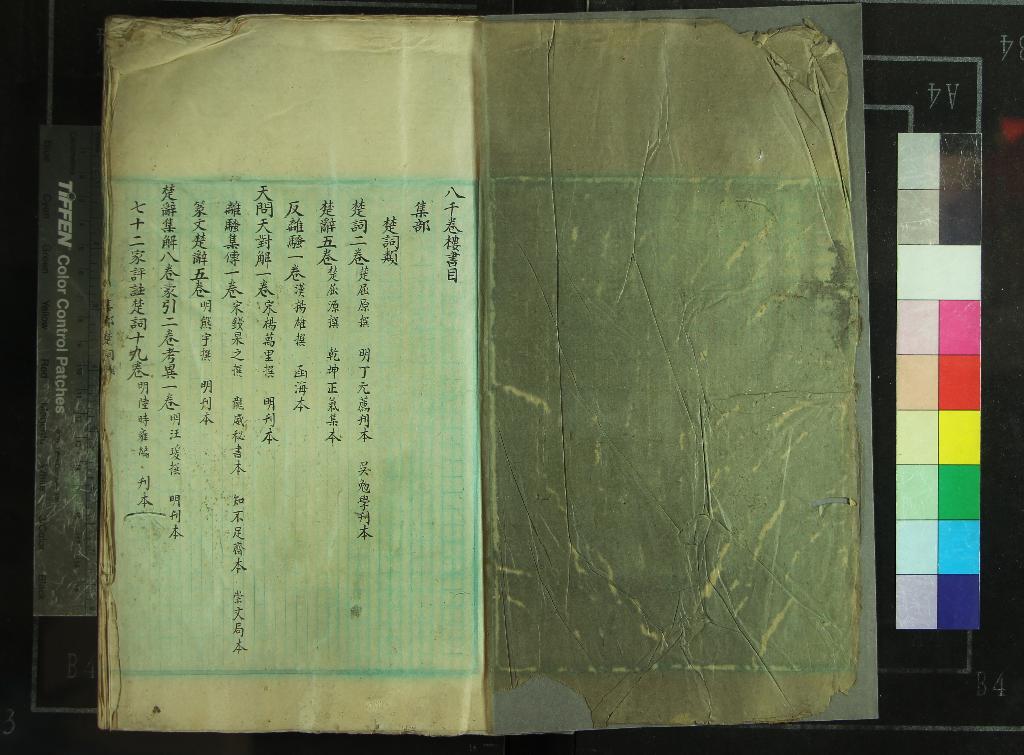 八千卷樓書目
集部
楚詞類
楚詞二卷 楚屈原撰 明丁元薦刊本 吳勉學刊本
楚辭五卷 楚屈源撰 乾坤正氣集本
反離騷一卷 漢揚雄撰 函海本
天問天對解一卷 宋楊萬里撰 明刊本
離騷集傳一卷 宋錢杲之撰 龍威秘書本 知不足齋本 崇文局本
篆文楚辭五卷 明熊宇撰 明刊本
楚辭集解八卷蒙引二卷考異一卷 明汪瑗撰 明刊本
七十二家評註楚詞十九卷 明陸時雍編 刊本
TIFFEN Color Control Patches
A4
B4
B4
3